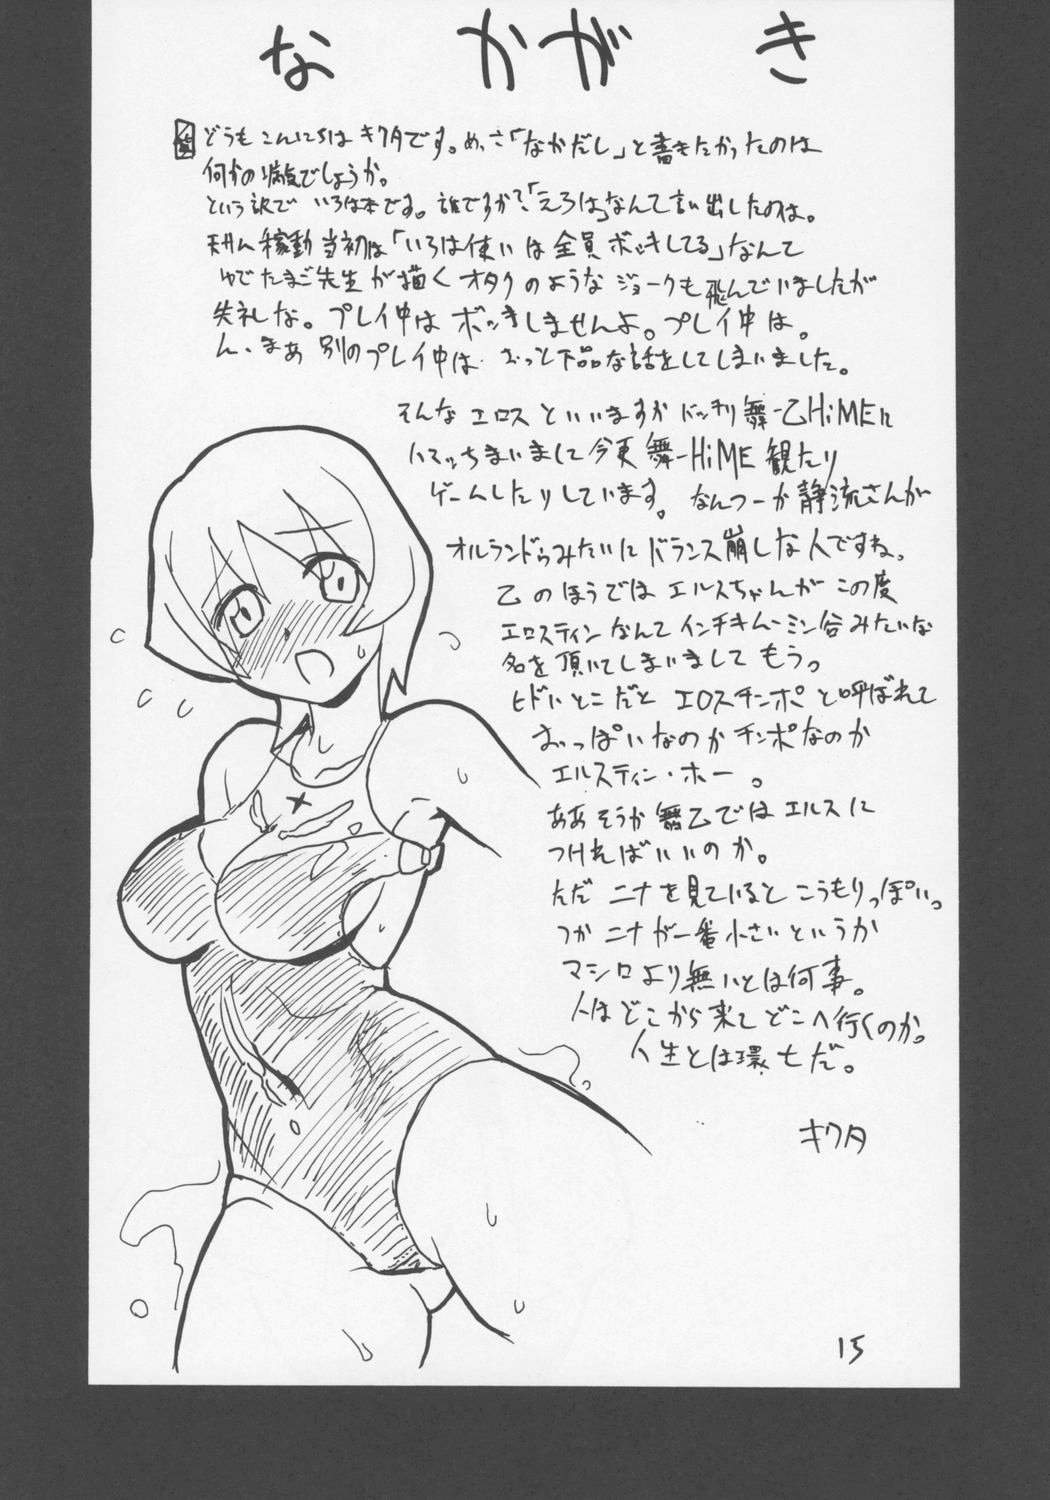 なかがき
どうもこんにちはキクタです。めっさ「なかだし」と書きたかったのは
何かの病気でしょうか。
という訳で いろは本です。誰ですか?「えろは」なんて言い出したのは。
天サム稼動当初は「いろは使いは全員ボッキしてる」なんて
ゆでたまご先生が描くオタクのようなジョークも飛んでいましたが
失礼な。プレイ中はボッキしませんよ。プレイ中は。
ん、まあ 別のプレイ中は、おっと下品な話をしてしまいました。
そんなエロスといいますか ドッキリ舞-乙HiMEに
ハマッちまいまして今更 舞-HiME 観たり
ゲームしたりしています。なんつーか静流さんが
オルランドゥみたいにバランス崩しな人ですね。
乙のほうではエルスちゃんがこの度
エロスティンなんてインチキムーミン谷みたいな
名を頂いてしまいましてもうっ
ヒドいとこだと エロスチンポと呼ばれて
おっぱいなのかチンポなのか
エルスティン・ホー。
ああそうか舞乙ではエルスに
つければいいのか。
ただニナを見ているとこうもりっぽい。
つかニナが一番小さいというか
マシロより無いとは何事。
人はどこから来てどこへ行くのか。
人生とは環七だ。
キクタ
15